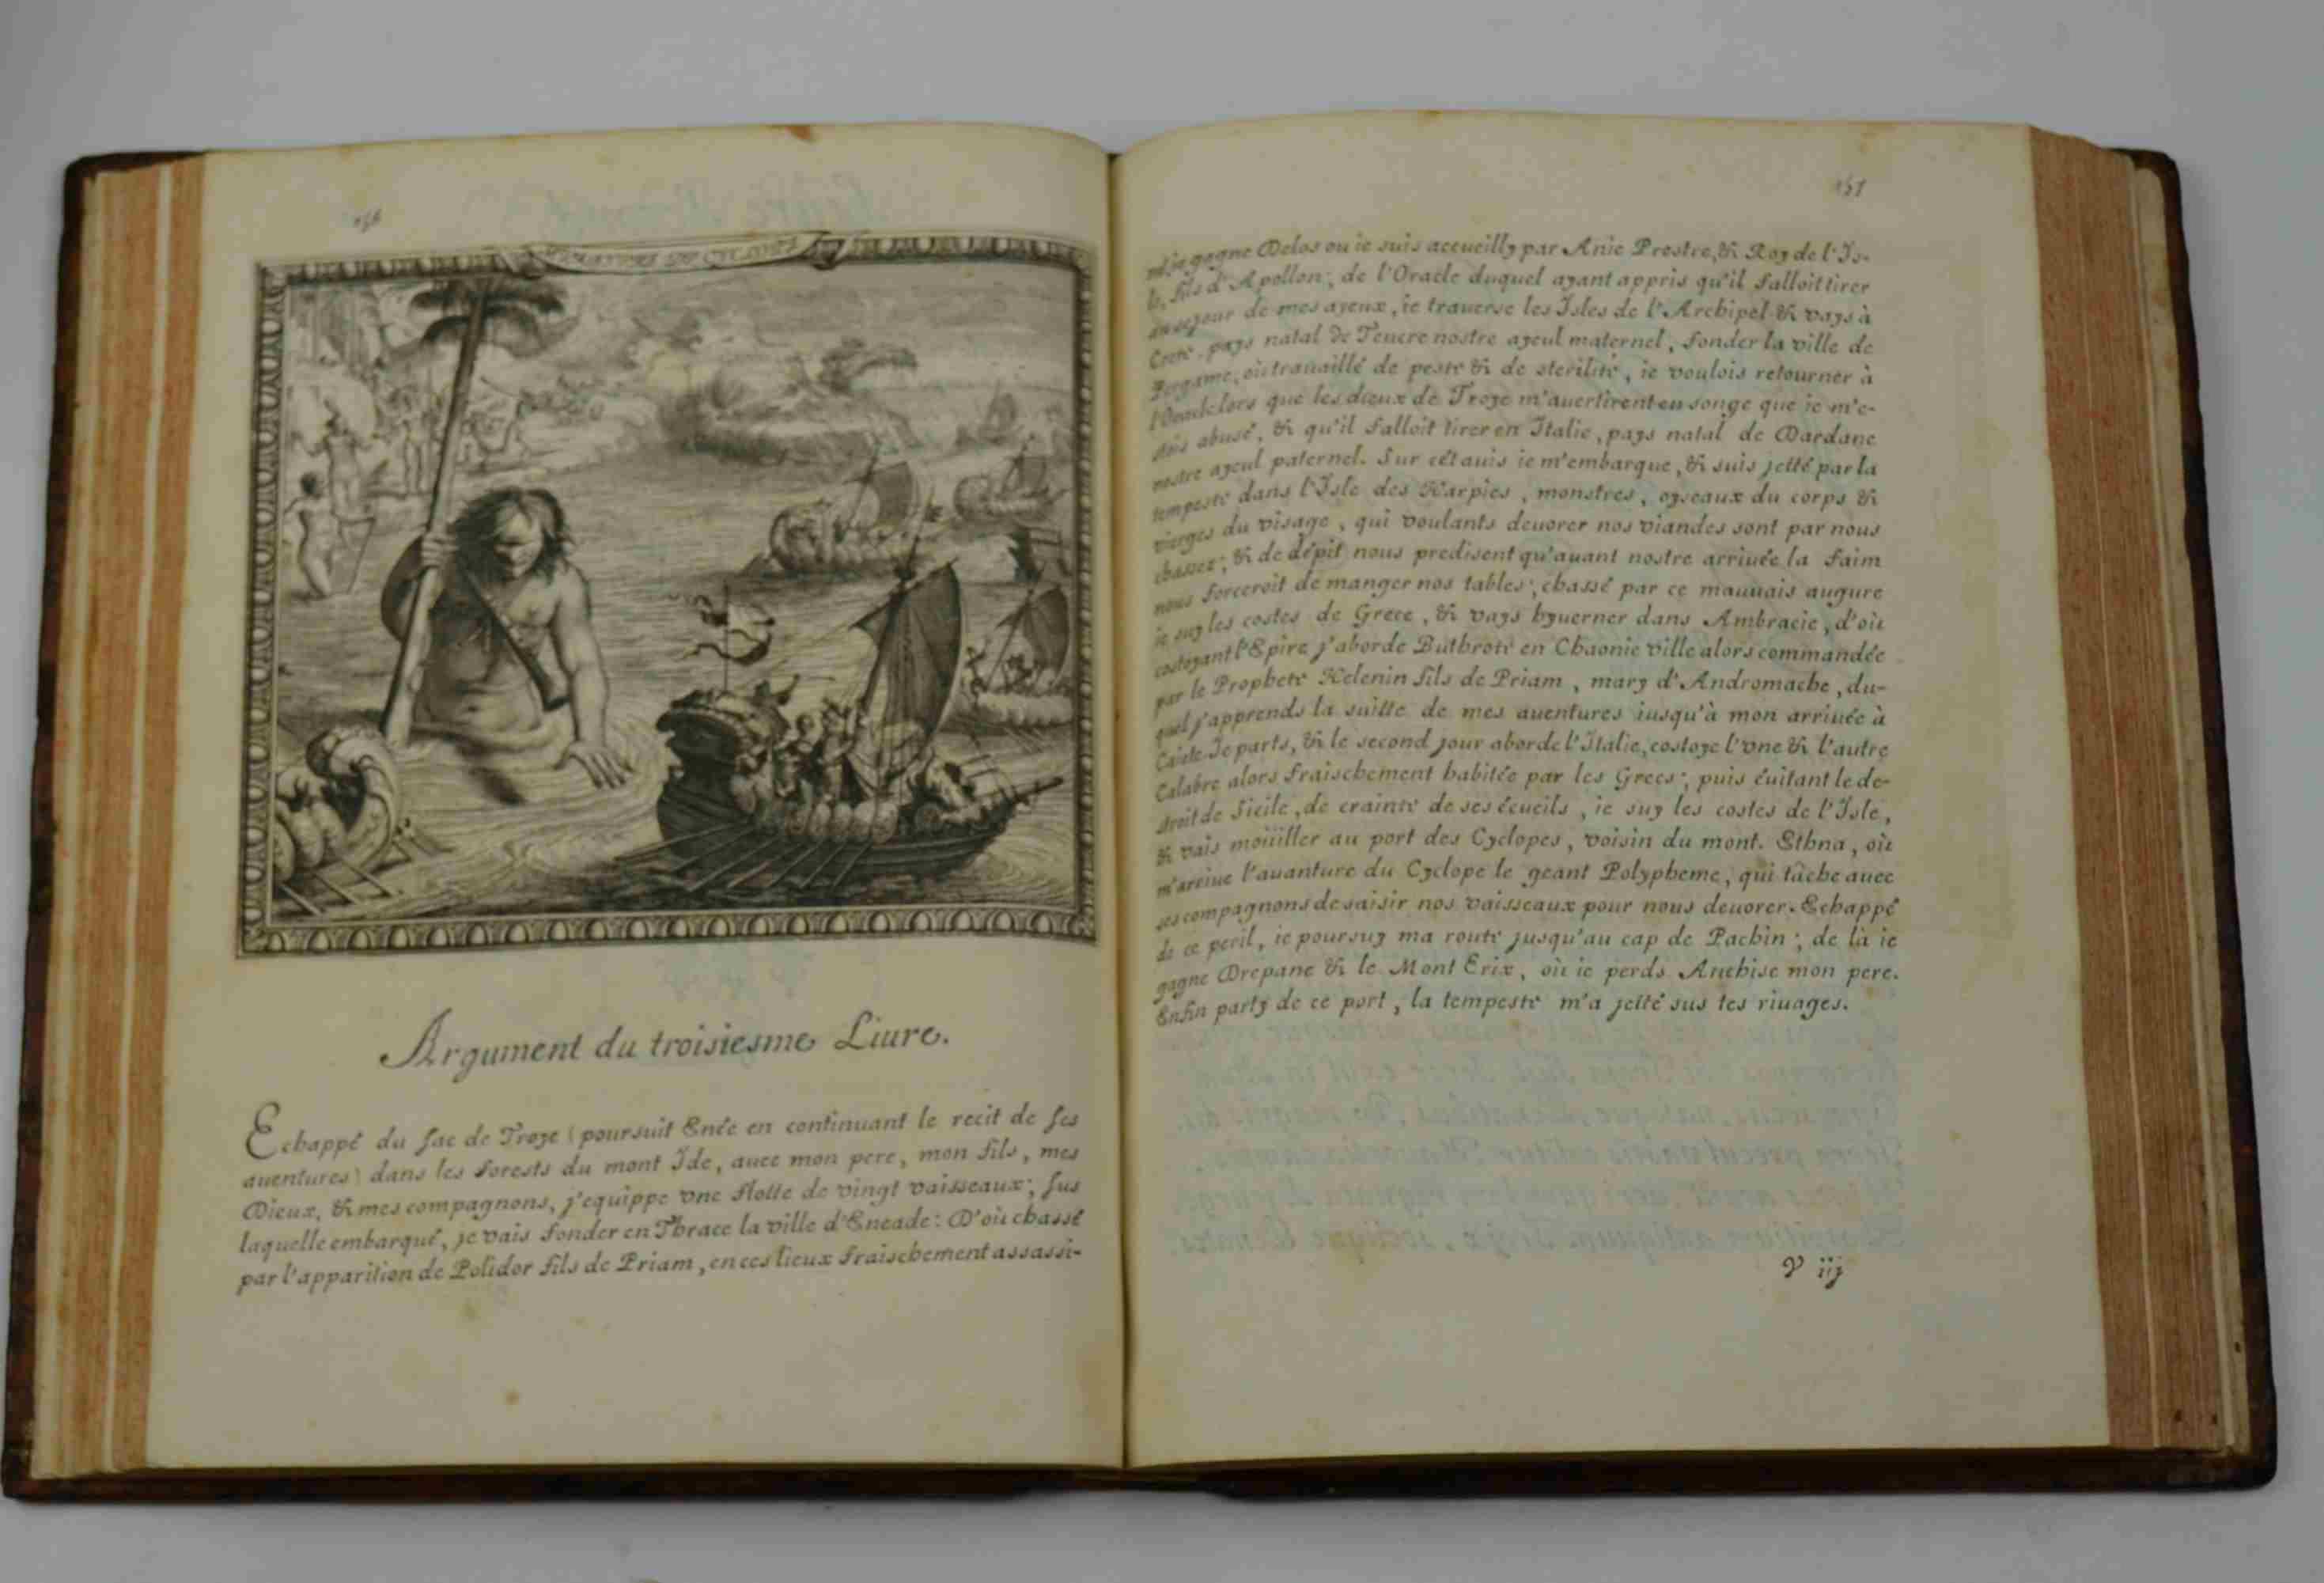 Argument du troisiesme Liure.
Echappé du sac de Troye (poursuit Enée en continuant le recit de ses
auentures) dans les forests du mont Ide, auec mon pere, mon fils, mes
Dieux, & mes compagnons, j'equippe vne flotte de vingt vaisseaux; sus
laquelle embarqué, je vais fonder en Thrace la ville d'Eneade: D'où chassé
par l'apparition de Polidor fils de Priam, en ces lieux fraischement assassi-
157
né, je gagne Delos ou ie suis accueilly par Anie Prestre, & Roy de l'Is-
le, fils d'Apollon; de l'Oracle duquel ayant appris qu'il falloit tirer
au sejour de mes ayeux, ie trauerse les Isles de l'Archipel & vays à
Crete, pays natal de Teucre nostre ayeul maternel, fonder la ville de
Pergame, où trauaillé de peste & de sterilité, ie voulois retourner à
l'Oracle lors que les dieux de Troye m'auertirent en songe que ie m'e-
stois abusé, & qu'il falloit tirer en Italie, pays natal de Dardane
nostre ayeul paternel. Sur cét auis ie m'embarque, & suis jetté par la
tempeste dans l'Isle des Harpies, monstres, oyseaux du corps &
vierges du visage, qui voulants deuorer nos viandes sont par nous
chassez; & de dépit nous predisent qu'auant nostre arriuée la faim
nous forceroit de manger nos tables; chassé par ce mauuais augure
ie suy les costes de Grece, & vays hyuerner dans Ambracie, d'où
costoyant l'Epire j'aborde Buthrote en Chaonie ville alors commandée
par le Prophete Helenin fils de Priam, mary d'Andromache, du-
quel j'apprends la suitte de mes auentures iusqu'à mon arriuée à
Caiete. Je parts, & le second jour aborde l'Italie, costoye l'vne & l'autre
Calabre alors fraischement habitée par les Grecs; puis éuitant le de-
stroit de Sicile, de crainte de ses écueils, ie suy les costes de l'Isle,
& vais moüiller au port des Cyclopes, voisin du mont. Ethna, où
m'ariue l'auanture du Cyclope le geant Polypheme, qui tâche auec
ses compagnons de saisir nos vaisseaux pour nous deuorer. Echappé
de ce peril, ie poursuy ma route jusqu'au cap de Pachin; de là ie
gagne Drepane & le Mont Erix, où ie perds Anchise mon pere.
Enfin party de ce port, la tempeste m'a jetté sus tes riuages.
V iij